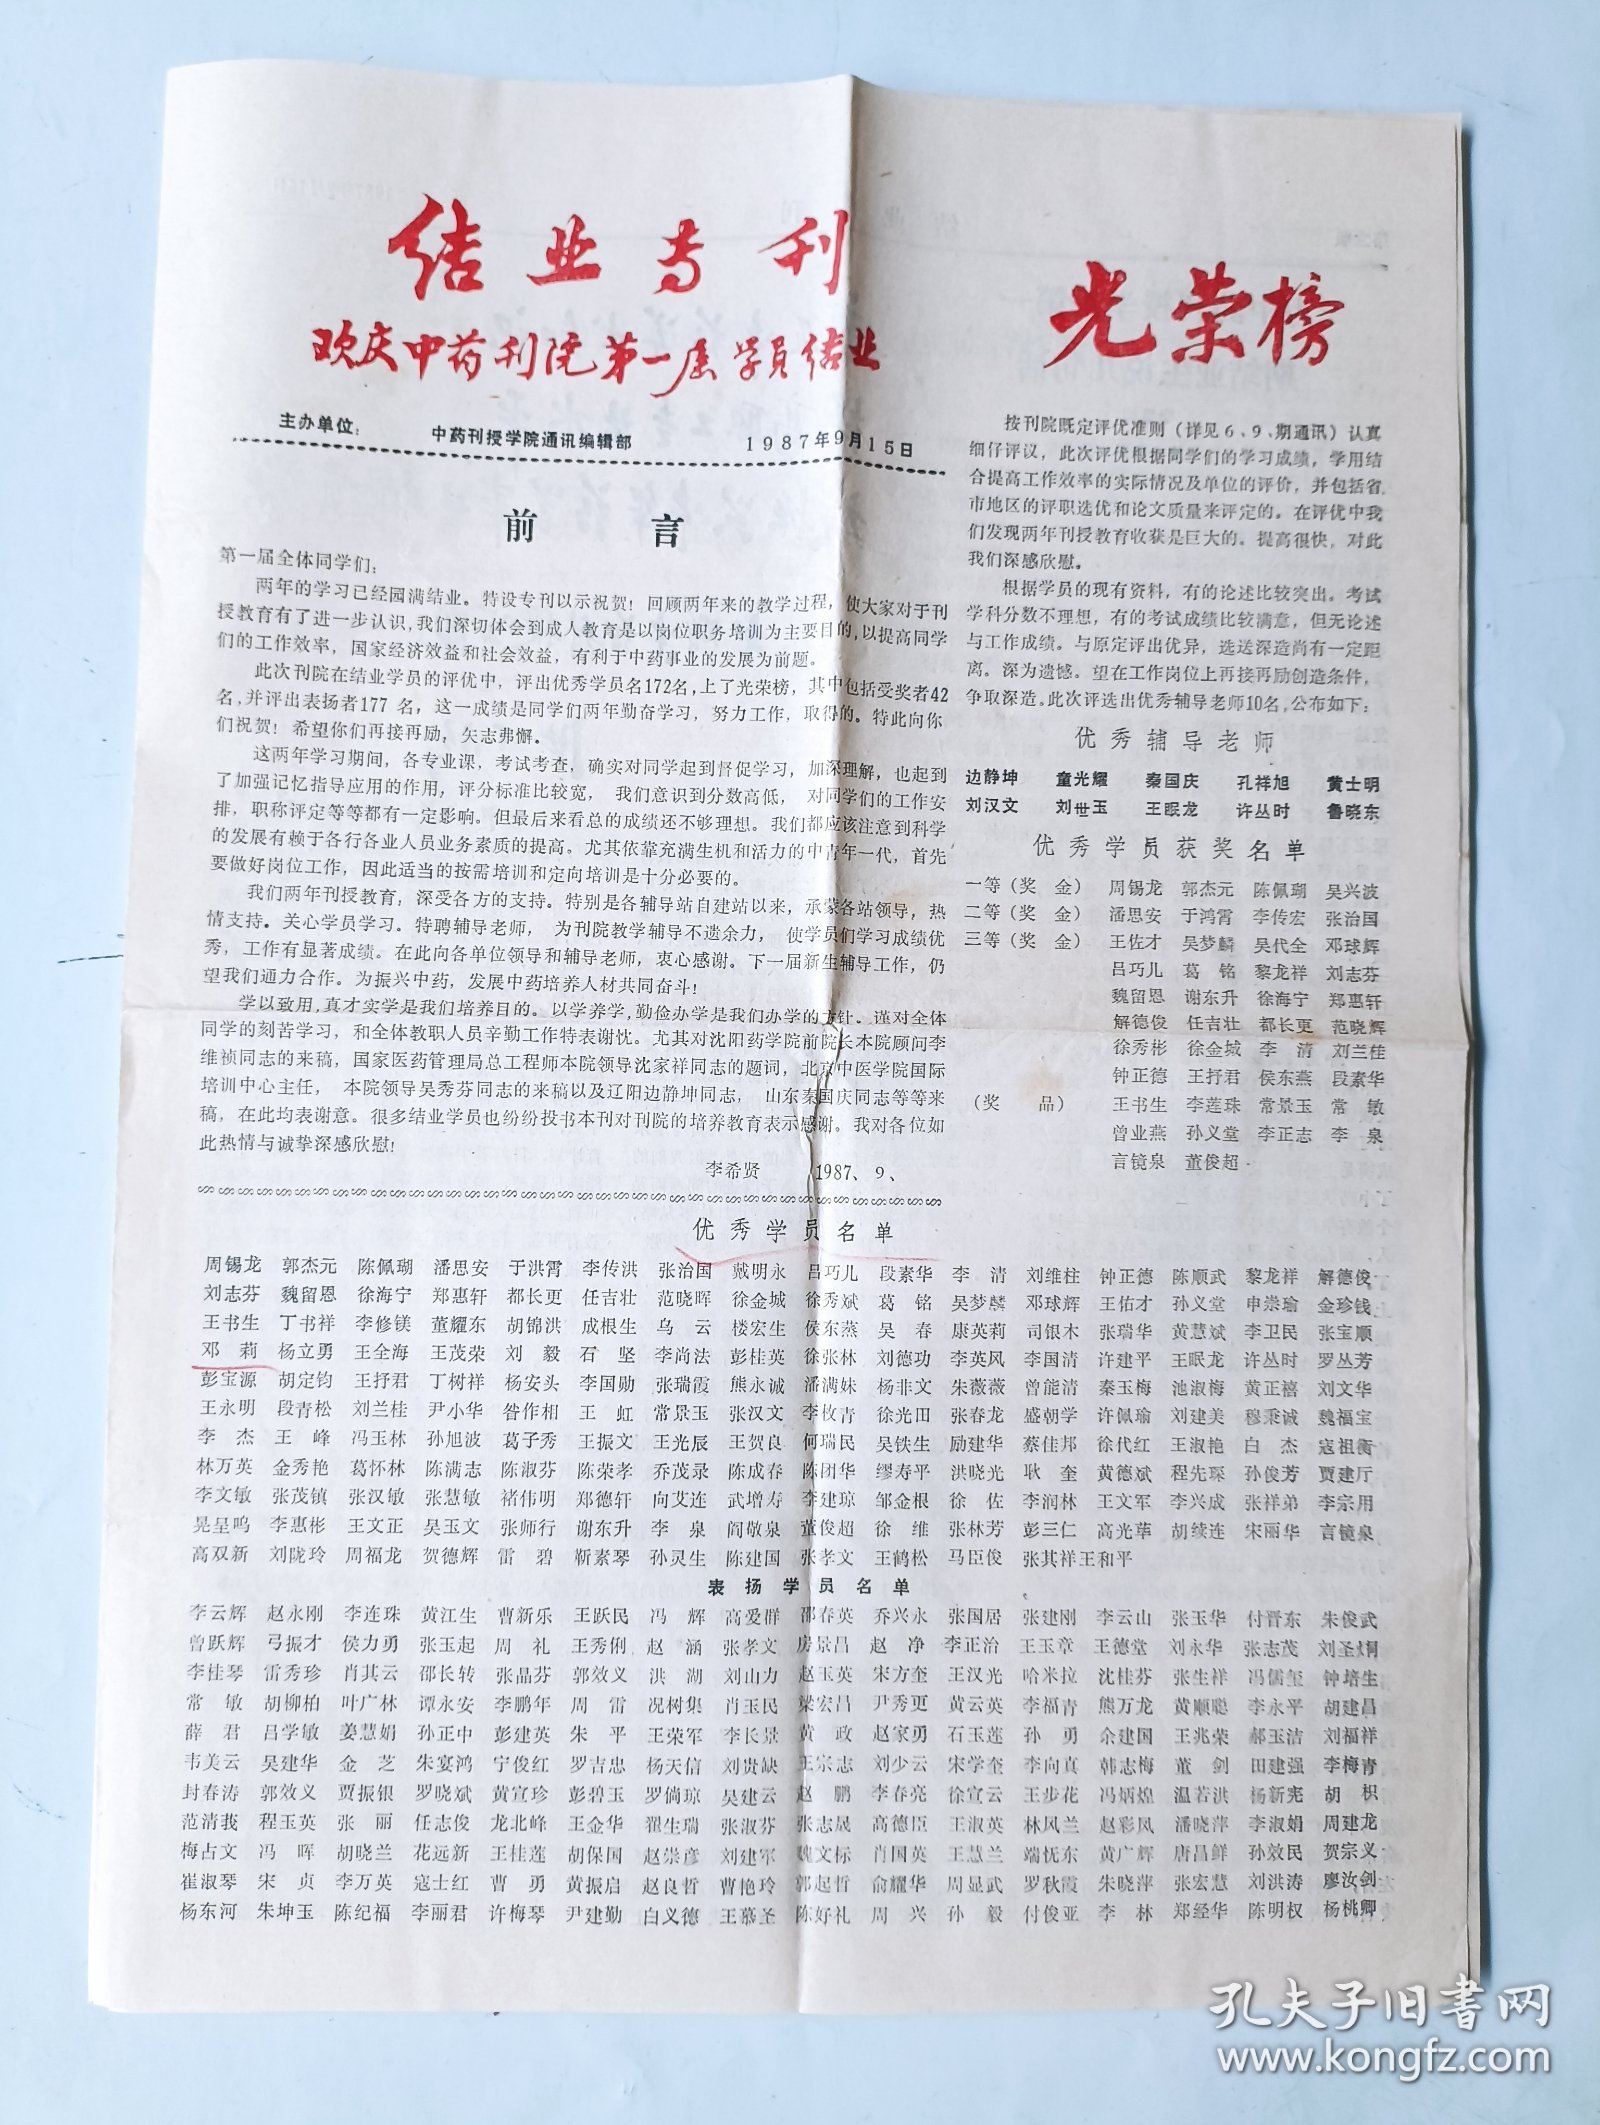 结业专刊
欢庆中药刊院第一届学员结业
主办单位：　中药刊授学院通讯编辑部　1987年9月15日
前言
第一届全体同学们：
两年的学习已经园满结业。特设专刊以示祝贺！回顾两年来的教学过程，使大家对于刊
授教育有了进一步认识，我们深切体会到成人教育是以岗位职务培训为主要目的，以提高同学
们的工作效率，国家经济效益和社会效益，有利于中药事业的发展为前题。
此次刊院在结业学员的评优中，评出优秀学员名172名，上了光荣榜，其中包括受奖者42
名，并评出表扬者177名，这一成绩是同学们两年勤奋学习，努力工作，取得的。特此向你
们祝贺！希望你们再接再励，矢志弗懈。
这两年学习期间，各专业课，考试考查，确实对同学起到督促学习，加深理解，也起到
了加强记忆指导应用的作用，评分标准比较宽，我们意识到分数高低，对同学们的工作安
排，职称评定等等都有一定影响。但最后来看总的成绩还不够理想。我们都应该注意到科学
的发展有赖于各行各业人员业务素质的提高。尤其依靠充满生机和活力的中青年一代，首先
要做好岗位工作，因此适当的按需培训和定向培训是十分必要的。
我们两年刊授教育，深受各方的支持。特别是各辅导站自建站以来，承蒙各站领导，热
情支持。关心学员学习。特聘辅导老师，为刊院教学辅导不遗余力，使学员们学习成绩优
秀，工作有显著成绩。在此向各单位领导和辅导老师，衷心感谢。下一届新生辅导工作，仍
望我们通力合作。为振兴中药，发展中药培养人材共同奋斗！
学以致用，真才实学是我们培养目的。以学养学，勤俭办学是我们办学的方针。谨对全体
同学的刻苦学习，和全体教职人员辛勤工作特表谢忱。尤其对沈阳药学院前院长本院顾问李
维祯同志的来稿，国家医药管理局总工程师本院领导沈家祥同志的题词，北京中医学院国际
培训中心主任，本院领导吴秀芬同志的来稿以及辽阳边静坤同志，山东秦国庆同志等等来
稿，在此均表谢意。很多结业学员也纷纷投书本刊对刊院的培养教育表示感谢。我对各位如
此热情与诚挚深感欣慰！
李希贤　1987、9、
光荣榜
按刊院既定评优准则（详见6、9、期通讯）认真
细仔评议，此次评优根据同学们的学习成绩，学用结
合提高工作效率的实际情况及单位的评价，并包括省、
市地区的评职选优和论文质量来评定的。在评优中我
们发现两年刊授教育收获是巨大的。提高很快，对此
我们深感欣慰。
根据学员的现有资料，有的论述比较突出。考试
学科分数不理想，有的考试成绩比较满意，但无论述
与工作成绩。与原定评出优异，选送深造尚有一定距
离。深为遗憾。望在工作岗位上再接再励创造条件，
争取深造。此次评选出优秀辅导老师10名，公布如下：
优秀辅导老师
边静坤　童光耀　秦国庆　孔祥旭　黄士明
刘汉文　刘世玉　王眠龙　许丛时　鲁晓东
优秀学员获奖名单
一等（奖金）　周锡龙　郭杰元　陈佩瑚　吴兴波
二等（奖金）　潘思安　于鸿霄　李传宏　张治国
三等（奖金）　王佐才　吴梦麟　吴代全　邓球辉
吕巧儿　葛铭　黎龙祥　刘志芬
魏留恩　谢东升　徐海宁　郑惠轩
解德俊　任吉壮　都长更　范晓辉
徐秀彬　徐金城　李清　刘兰桂
钟正德　王抒君　侯东燕　段素华
（奖品）　王书生　李莲珠　常景玉　常敏
曾业燕　孙义堂　李正志　李泉
言镜泉　董俊超
优秀学员名单
周锡龙　郭杰元　陈佩瑚　潘思安　于洪霄　李传洪　张治国　戴明永　吕巧儿　段素华　李清　刘维柱　钟正德　陈顺武　黎龙祥　解德俊
刘志芬　魏留恩　徐海宁　郑惠轩　都长更　任吉壮　范晓晖　徐金城　徐秀斌　葛铭　吴梦麟　邓球辉　王佑才　孙义堂　申崇瑜　金珍钱
王书生　丁书祥　李修镁　董耀东　胡锦洪　成根生　乌云　楼宏生　侯东燕　吴春　康英莉　司银木　张瑞华　黄慧斌　李卫民　张宝顺
邓莉　杨立勇　王全海　王茂荣　刘毅　石坚　李尚法　彭桂英　徐张林　刘德功　李英风　李国清　许建平　王眠龙　许丛时　罗丛芳
彭宝源　胡定钧　王抒君　丁树祥　杨安头　李国勋　张瑞霞　熊永诚　潘满妹　杨非文　朱薇薇　曾能清　秦玉梅　池淑梅　黄正禧　刘文华
王永明　段青松　刘兰桂　尹小华　昝作相　王虹　常景玉　张汉文　李枚青　徐光田　张春龙　盛朝学　许佩瑜　刘建美　穆秉诚　魏福宝
李杰　王峰　冯玉林　孙旭波　葛子秀　王振文　王光辰　王贺良　何瑞民　吴铁生　励建华　蔡佳邦　徐代红　王淑艳　白杰　寇祖衡
林万英　金秀艳　葛怀林　陈满志　陈淑芬　陈荣孝　乔茂录　陈成春　陈团华　缪寿平　洪晓光　耿奎　黄德斌　程先琛　孙俊芳　贾建厅
李文敏　张茂镇　张汉敏　张慧敏　褚伟明　郑德轩　向艾连　武增寿　李建琼　邹金根　徐佐　李润林　王文军　李兴成　张祥弟　李宗用
晃呈鸣　李惠彬　王文正　吴玉文　张师行　谢东升　李泉　阎敬泉　董俊超　徐维　张林芳　彭三仁　高光革　胡续连　宋丽华　言镜泉
高双新　刘陇玲　周福龙　贺德辉　雷碧　靳素琴　孙灵生　陈建国　张孝文　王鹤松　马臣俊　张其祥　王和平
表扬学员名单
李云辉　赵永刚　李连珠　黄江生　曹新乐　王跃民　冯辉　高爱群　邵春英　乔兴永　张国居　张建刚　李云山　张玉华　付晋东　朱俊武
曾跃辉　弓振才　侯力勇　张玉起　周礼　王秀俐　赵涵　张孝文　房景昌　赵净　李正治　王玉章　王德堂　刘永华　张志茂　刘圣炯
李桂琴　雷秀珍　肖其云　邵长转　张晶芬　郭效义　洪湖　刘山力　赵玉英　宋方奎　王汉光　哈米拉　沈桂芬　张生祥　冯儒玺　钟培生
常敏　胡柳柏　叶广林　谭永安　李鹏年　周雷　况树集　肖玉民　梁宏昌　尹秀更　黄云英　李福青　熊万龙　黄顺聪　李永平　胡建昌
薛君　吕学敏　姜慧娟　孙正中　彭建英　朱平　王荣军　李长景　黄政　赵家勇　石玉莲　孙勇　余建国　王兆荣　郝玉洁　刘福祥
韦美云　吴建华　金芝　朱宴鸿　宁俊红　罗吉忠　杨天信　刘贵缺　王宗志　刘少云　宋学奎　李向真　韩志梅　董剑　田建强　李梅青
封春涛　郭效义　贾振银　罗晓斌　黄宣珍　彭碧玉　罗倘琼　吴建云　赵鹏　李春亮　徐宣云　王步花　冯炳煌　温若洪　杨新宪　胡枳
范清莪　程玉英　张丽　任志俊　龙北峰　王金华　翟生瑞　张淑芬　张志晟　高德臣　王淑英　林风兰　赵彩凤　潘晓萍　李淑娟　周建龙
梅占文　冯晖　胡晓兰　花远新　王桂莲　胡保国　赵崇彦　刘建军　魏文标　肖国英　王慧兰　端怃东　黄广辉　唐昌鲜　孙效民　贺宗义
崔淑琴　宋贞　李万英　寇士红　曹勇　黄振启　赵良哲　曹艳玲　郭起哲　俞耀华　周显武　罗秋霞　朱晓萍　张宏慧　刘洪涛　廖汝剑
杨东河　朱坤玉　陈纪福　李丽君　许梅琴　尹建勤　白义德　王慕圣　陈好礼　周兴　孙毅　付俊亚　李林　郑经华　陈明权　杨桃卿
孔夫子旧书网
www.kongfz.com